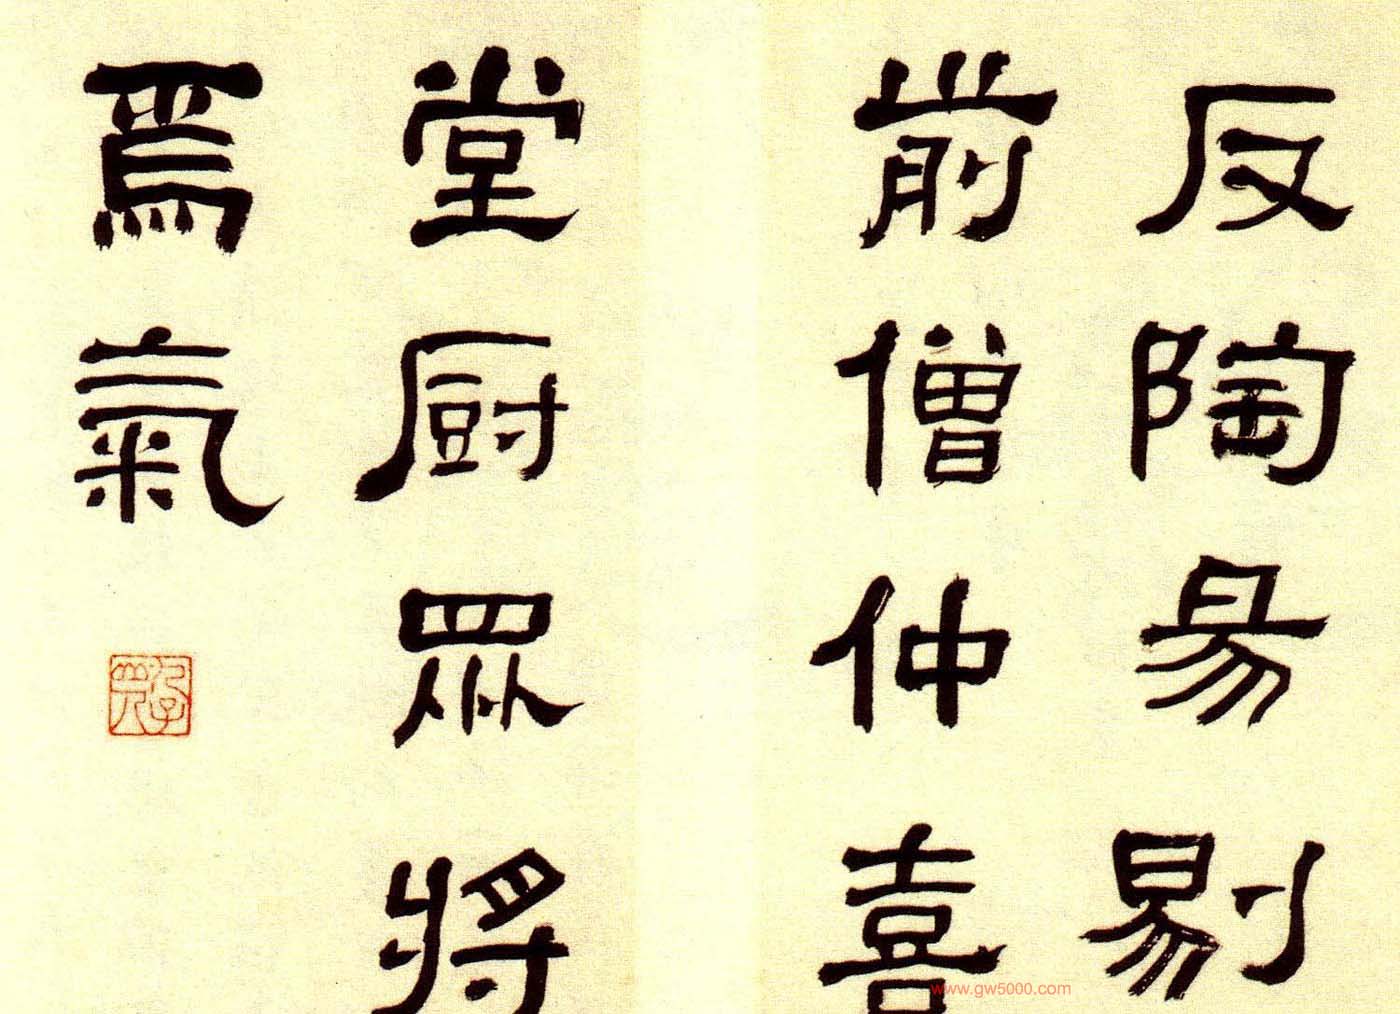 反陶昜剔
前僧仲喜
堂厨眾將
焉氣
www.gw5000.com